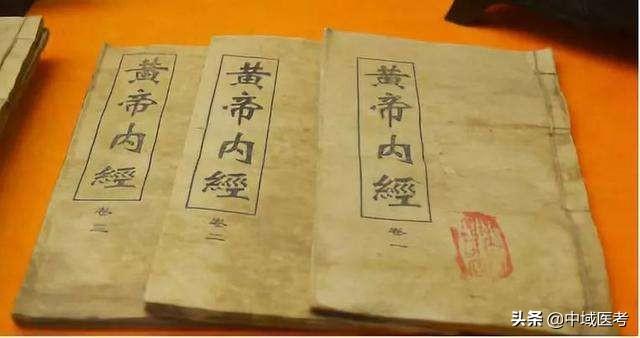 黄帝内經
卷一
黄帝内經
卷二
黄帝内經
卷三
头条 @中域医考